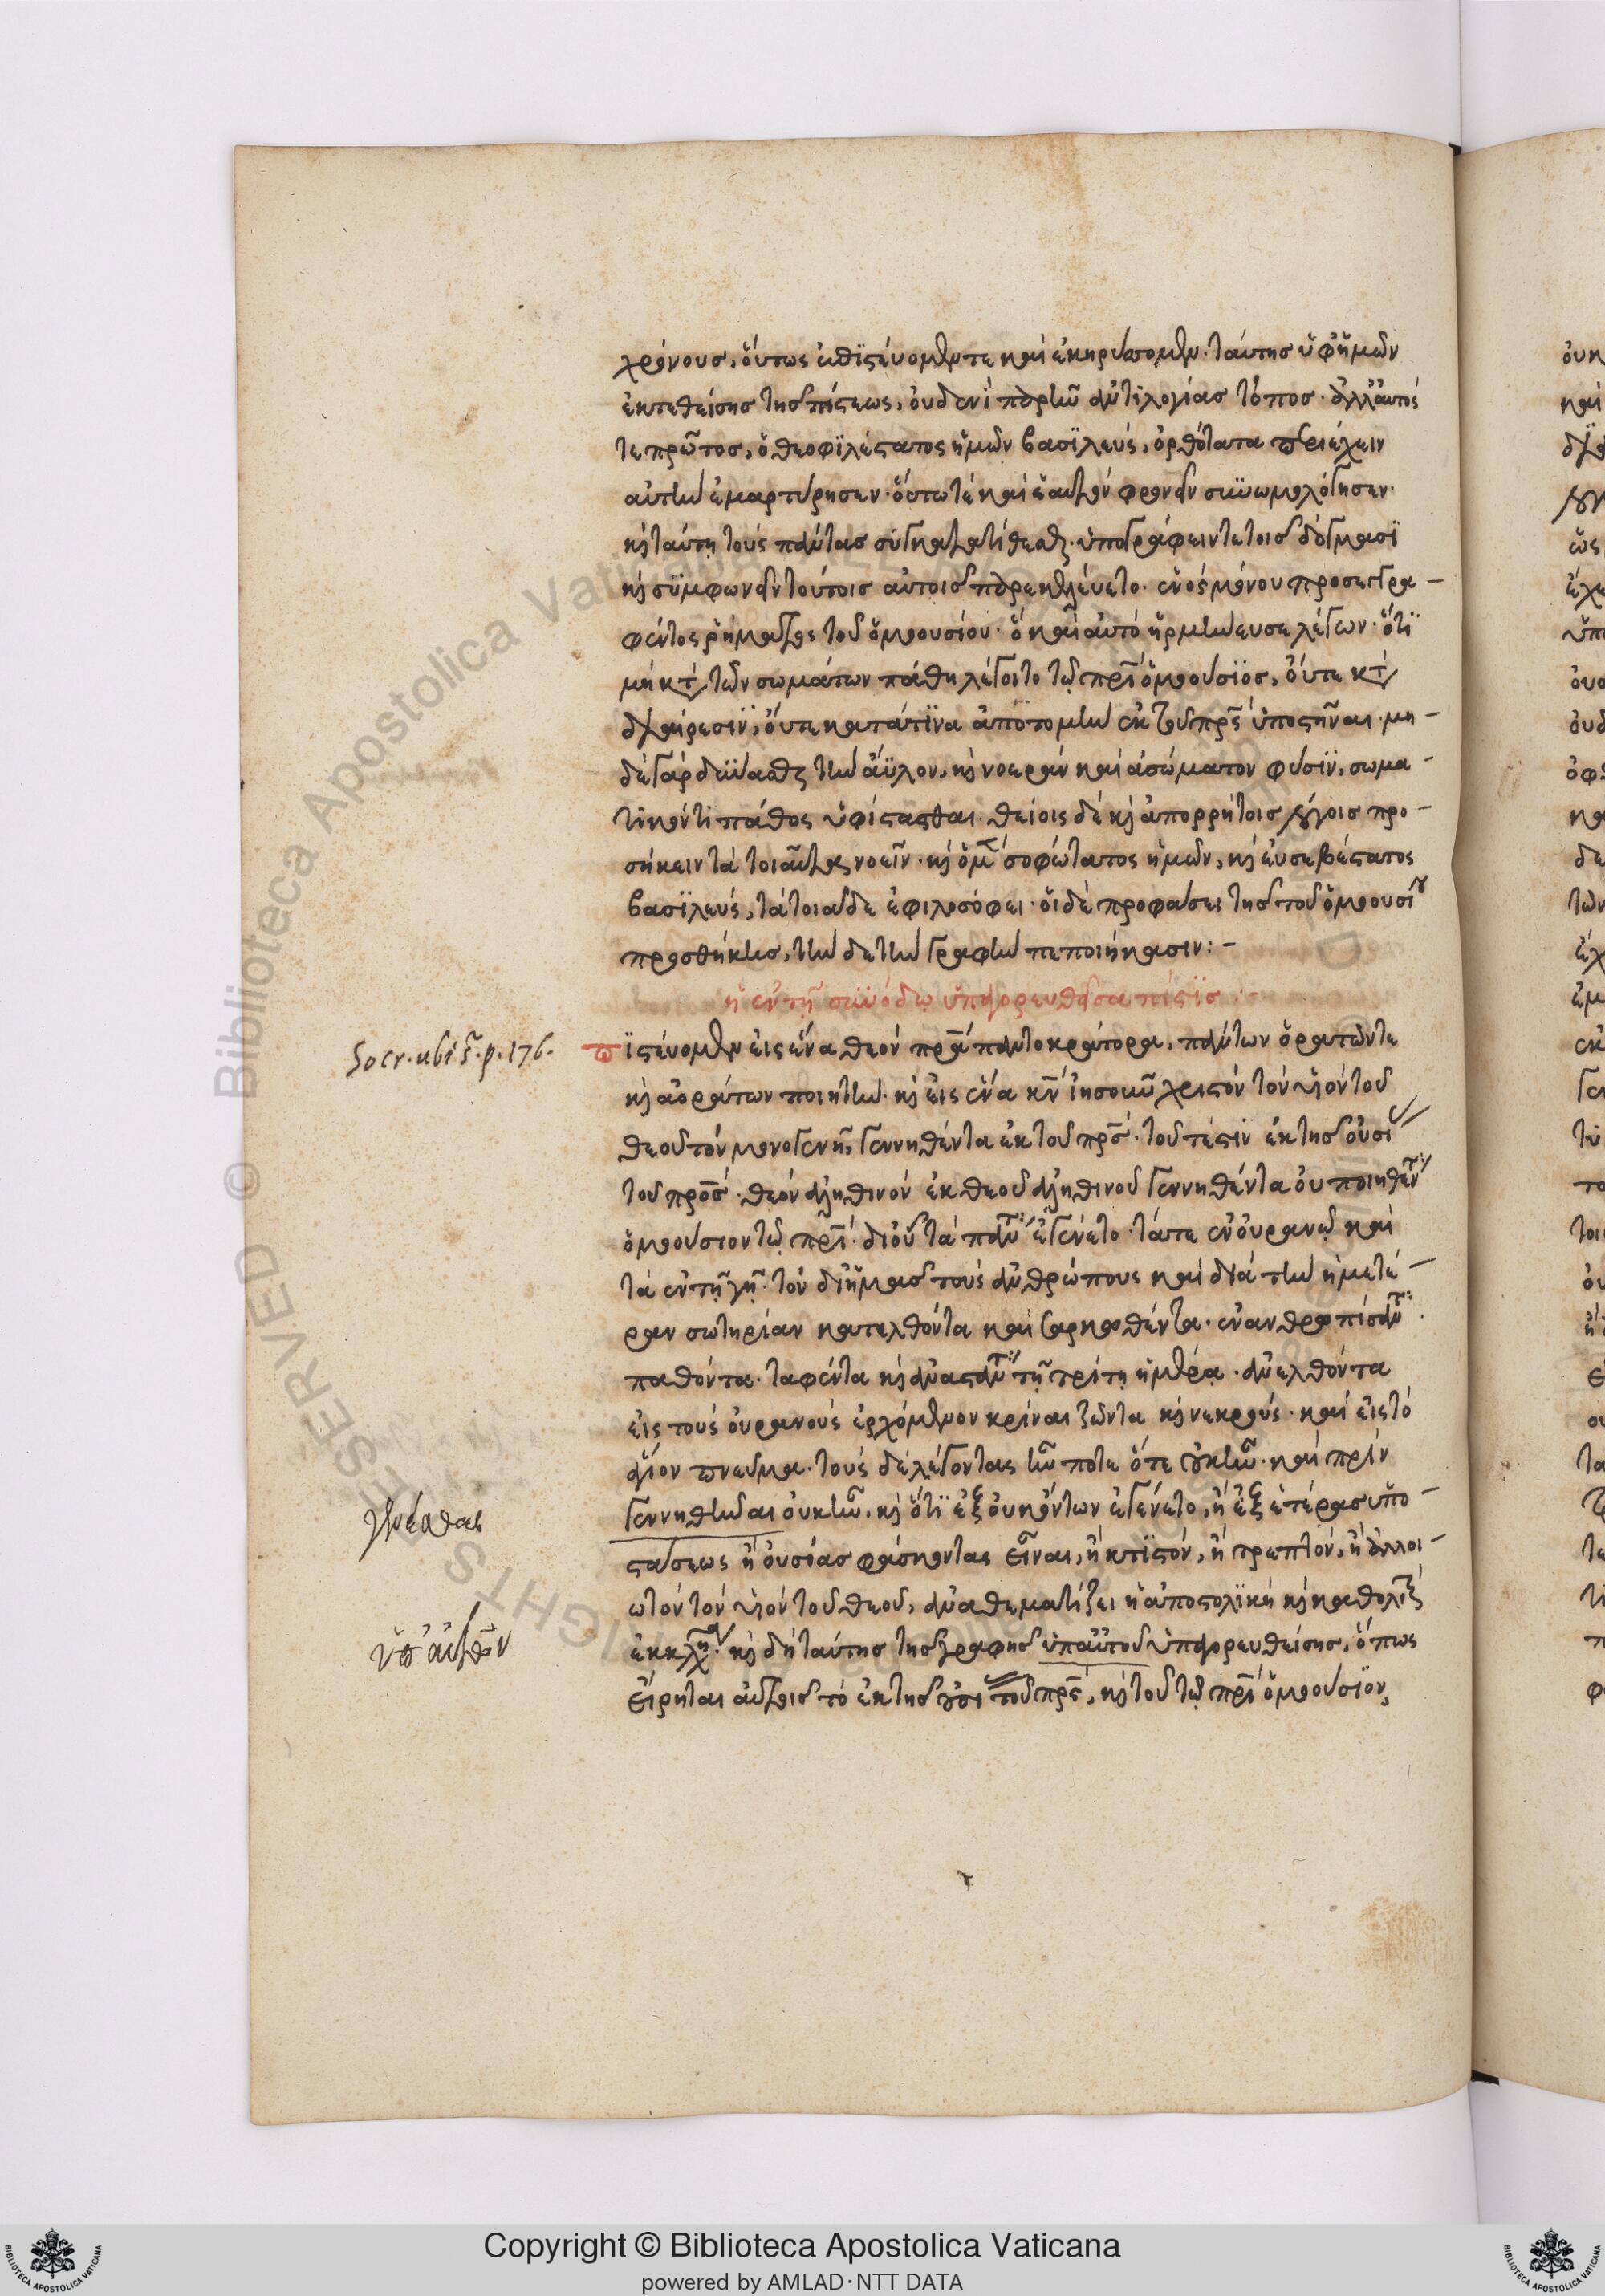 χρόνους, ὅυτως ἐπϊςέυομεν τε καὶ ἐκηρύττομεν· ταύτης ὑφ' ἡμῶν
ἐκτεθείσης της πίςεως, ὀυδενὶ παρῆν ἀντιλογίας τόπος· ἀλλ' ἀυτός
τε πρῶτος, ὁ θεοφϊλέςατος ἡμῶν βασϊλευς, ὀρθότατα περιέχειν
αὐτὴν ἐμαρτύρησεν· ὅυτω τέ καὶ ἑαυτὸν φρονεῖν συνωμολόγησεν·
κὶ ταύτη τοὺς πάντας συγκατατίθεσθαι· ὑπογράφειν τε τοις δόγμασϊ
κὶ σϋμφωνεῖν τούτοις ἀυτοις παρεκελεύετο· ἑνὸς μόνου προσεγγρα-
φέντος ῥήματος τοῦ ὁμοουσίου· ὃ καὶ αὐτὸ ἡρμήνευσε λέγων· ὅτϊ
μὴ κτ τῶν σωμάτων πάθη λέγοιτο τῶ πρὶ ὁμοούσϊος, ὄυτε κτ
διαίρεσϊν, ὄυτε κατά τϊνα ἀποτομὴν ἐκ τοῦ πρς ὑποςῆναι· μη-
δὲ γὰρ δύνασθαι τὴν ἄϋλον, κὶ νοερὰν καὶ ἀσώματον φύσϊν, σωμα-
τικόν τι πάθος ὑφίςασθαι· θείοις δὲ κὶ ἀπορρήτοις λόγοις προ-
σήκειν τὰ τοιαῦτα νοεῖν· κὶ ὁ μ σοφώτατος ἡμῶν, κὶ ἐυσεβέςατος
βασϊλευς, τὰ τοιαῦδε ἐφιλοσόφει· ὁι δὲ προφάσει της τοῦ ὁμοουσίου
προσθήκης, τὴν δε τὴν γραφὴν πεποιήκασιν:-
ἡ ἐν τῆ συνόδω ὑπαγορευθεῖσα πίςϊς :-
Socr. ubi s. p. 176.
πϊςέυομεν ἐις ἕνα θεόν πρα παντοκράτορα, πάντων ὁρατῶν τε
κὶ ἀοράτων ποιητὴν· κὶ ἐις ἕνα κν ἰησοῦν χριςὸν τὸν υἱὸν τοῦ
θεοῦ τὸν μονογενῆ, γεννηθέντα ἐκ τοῦ πρς· τοῦτέςϊν ἐκ της οὐσί
τοῦ προς· θεὸν ἀληθινὸν ἐκ θεοῦ ἀληθινοῦ γεννηθέντα ὀυ ποιηθέντ
ὁμοούσιον τῶ πρὶ· δι' οὗ τὰ πάντ ἐγένετο· τά τε ἐν ὀυρανῶ καὶ
τὰ ἐν τῆ γῆ· τὸν δι' ἡμας τοὺς ἀνθρώπους καὶ διὰ τὴν ἡμετέ-
ραν σωτηρίαν κατελθόντα καὶ σαρκωθέντα· ἐνανθρωπίσαντ·
παθόντα· ταφέντα κὶ ἀναςάντ τῆ τρίτη ἡμέρα· ἀνελθόντα
εἰς τοὺς ὀυρανοὺς ἐρχόμενον κρίναι ζῶντα κὶ νεκροὺς· καὶ ἐις τὸ
ἅγιον πνεῦμα· τοὺς δὲ λέγοντας ἦν ποτε ὅτε οὐκ ἦν· καὶ πρὶν
γεννηθῆναι ὀυκ ἦν, κὶ ὅτϊ ἐξ ὀυκ ὄντων ἐγένετο, ἢ ἐξ ἑτέρας ὑπο-
γενέσθαι
ςάσεως ἢ ὀυσίας φάσκοντας εἶναι, ἢ κτϊςὸν, ἢ τρεπτὸν, ἢ ἀλλοι-
ωτὸν τὸν υἱὸν τοῦ θεοῦ, ἀναθεματίζει ἡ ἀποςολϊκὴ κὶ καθολικ
ὑπ' ἀυτῶν
ἐκκλη· κὶ δὴ ταύτης της γραφης ὑπ' αὐτοῦ ὑπαγορευθείσης, ὅπως
ἔιρηται ἀυτοις τὸ ἐκ της οὐσί τοῦ πρς, κὶ τοῦ τῶ πρὶ ὁμοούσϊον,